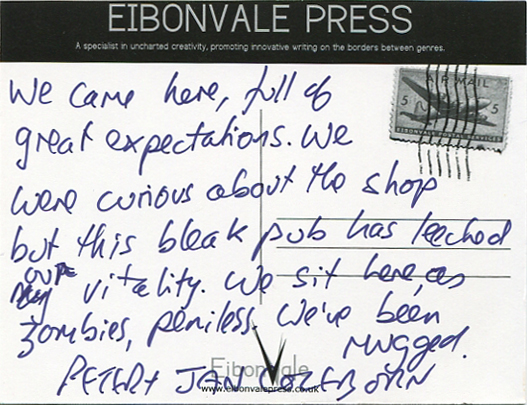 EIBONVALE PRESS
A specialist in uncharted creativity, promoting innovative writing on the borders between genres.
AIR MAIL
5 5
EIBONVALE POSTAL SERVICES
We came here, full of
great expectations. We
were curious about the shop
but this bleak pub has leeched
our
my vitality. We sit here, as
zombies, penniless. We've been
mugged.
Eibonvale
PETER + JAN
www.eibonvalepress.co.uk